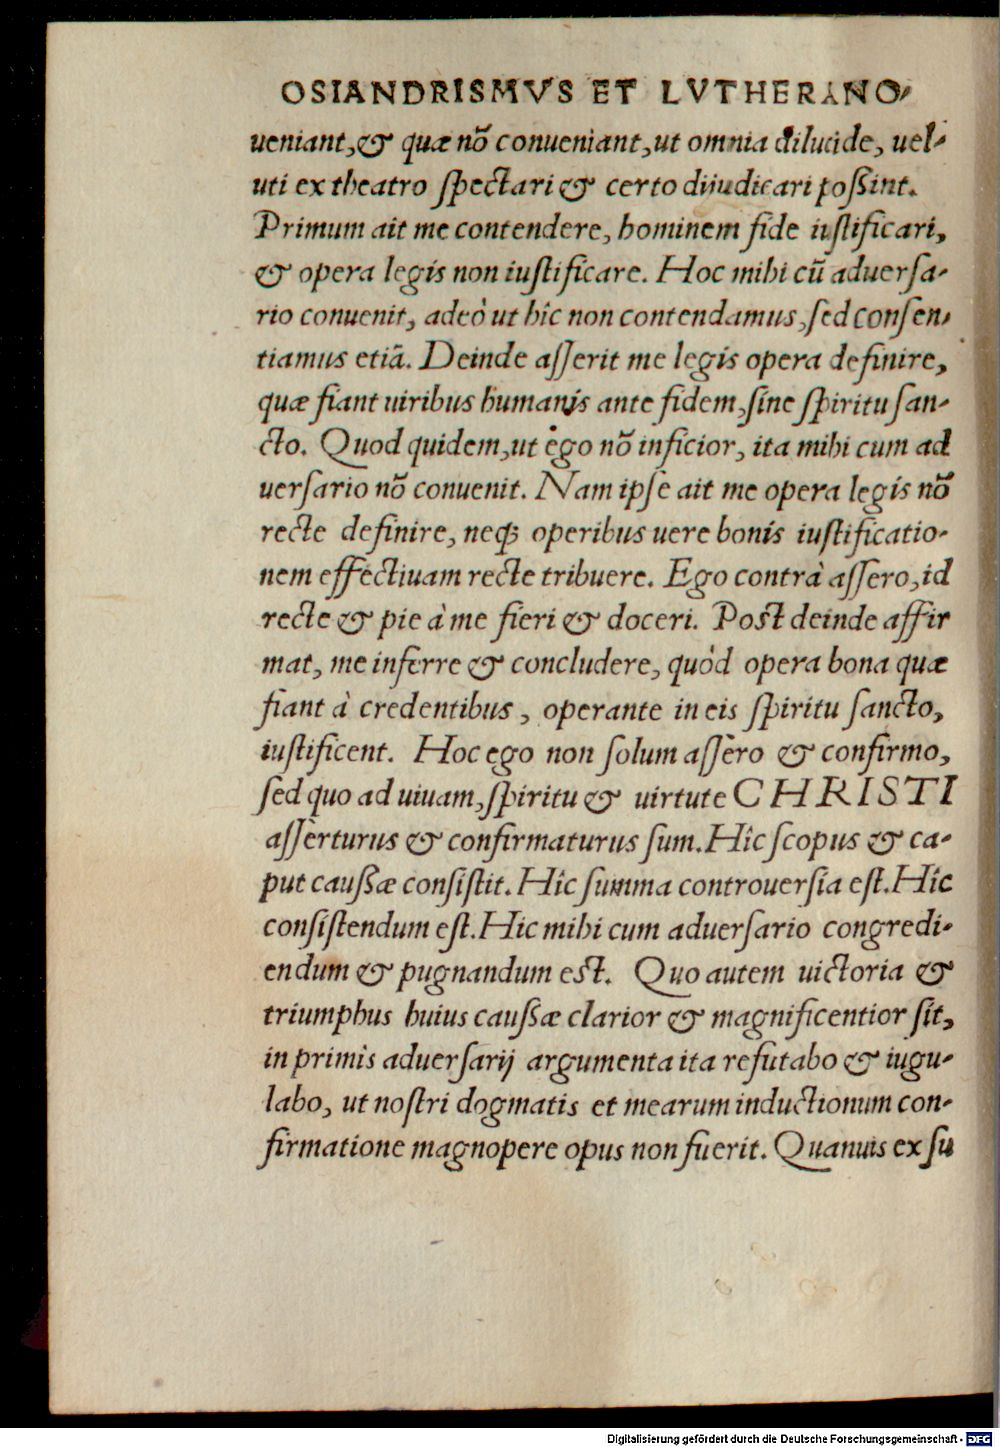 OSIANDRISMVS ET LVTHERANO-
ueniant, & quæ nõ conueniant, ut omnia dilucide, uel-
uti ex theatro spectari & certo diiudicari poßint.
Primum ait me contendere, hominem fide iustificari,
& opera legis non iustificare. Hoc mihi cũ aduersa-
rio conuenit, adeò ut hîc non contendamus, sed consen-
tiamus etiã. Deinde asserit me legis opera definire,
quæ fiant uiribus humanis ante fidem, sine spiritu san-
cto. Quod quidem, ut ego nõ inficior, ita mihi cum ad
uersario nõ conuenit. Nam ipse ait me opera legis nõ
recte definire, neq; operibus uere bonis iustificatio-
nem effectiuam recte tribuere. Ego contrà assero, id
recte & pie à me fieri & doceri. Post deinde affir
mat, me inferre & concludere, quòd opera bona quæ
fiant à credentibus, operante in eis spiritu sancto,
iustificent. Hoc ego non solum assero & confirmo,
sed quo ad uiuam, spiritu & uirtute CHRISTI
asserturus & confirmaturus sum. Hîc scopus & ca-
put caußæ consistit. Hîc summa controuersia est. Hîc
consistendum est. Hic mihi cum aduersario congredi-
endum & pugnandum est. Quo autem uictoria &
triumphus huius caußæ clarior & magnificentior sit,
in primis aduersarij argumenta ita refutabo & iugu-
labo, ut nostri dogmatis et mearum inductionum con-
firmatione magnopere opus non fuerit. Quanuis ex su
Digitalisierung gefördert durch die Deutsche Forschungsgemeinschaft - DFG